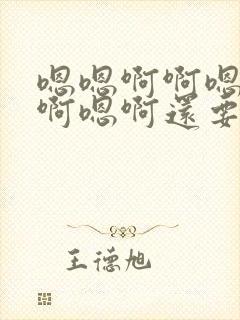 嗯嗯啊啊嗯
啊嗯啊还要
王德旭